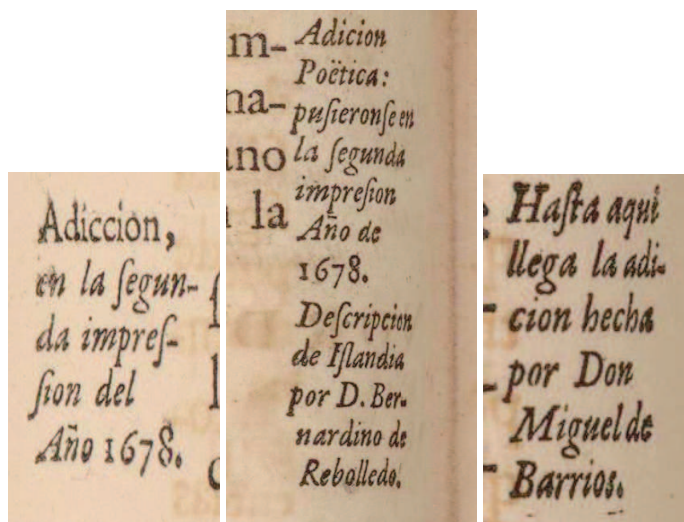 Adiccion,
en la ſegun-
da impreſ-
ſion del
Año 1678.
m-
na-
ano
la
Adicion
Poëtica:
puſieronſe en
la ſegunda
impreſion
Año de
1678.
Deſcripcion
de Iſlandia
por D. Ber-
nardino de
Rebolledo.
Haſta aqui
llega la adi-
cion hecha
por Don
Miguel de
Barrios.